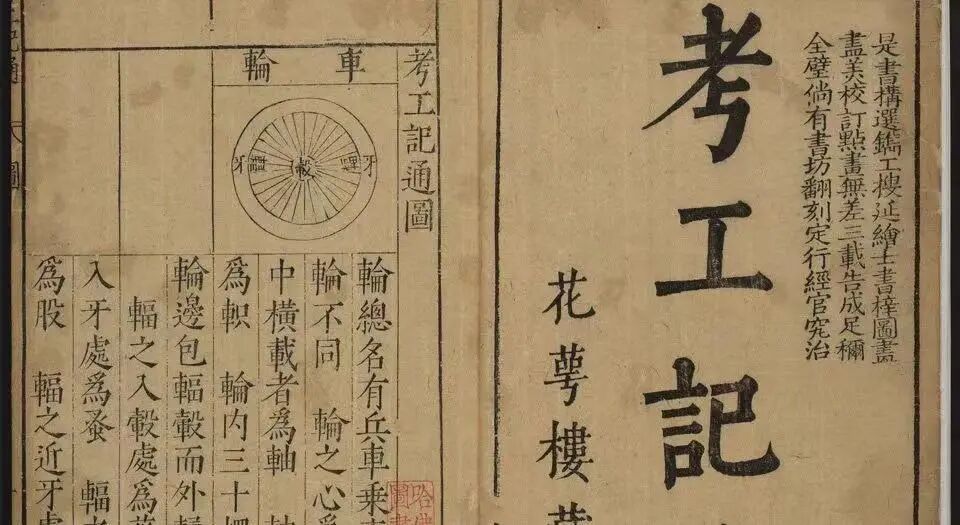 是書構選鐫工搜延繪士書梓圖畫
盡美校訂點畫無差三載告成足稱
全璧倘有書坊翻刻定行經官究治
考工記
花萼樓藏
考工記通圖
車輪
牙
轂
牙
輪總名有兵車乗車
輪不同 輪之心爲
中橫載者爲軸 軸
爲軹 輪内三十輻
輪邊包輻轂而外
輻之入轂處爲菑
入牙處爲蚤 輻
爲股 輻之近牙處
圖
哈佛
圖書